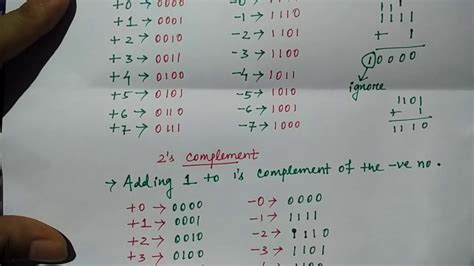 +0 → 0000 -0 → 1111 1111
+1 → 0001 -1 → 1110 + 1
+2 → 0010 -2 → 1101 10000
+3 → 0011 -3 → 1100 ignore
+4 → 0100 -4 → 1011
+5 → 0101 -5 → 1010 1101
+6 → 0110 -6 → 1001 + 1
+7 → 0111 -7 → 1000 1110
2's complement
→ Adding 1 to 1's complement of the -ve no.
+0 → 0000 -0 → 0000
+1 → 0001 -1 → 1111
+2 → 0010 -2 → 1110
+3 → 0011 -3 → 1101